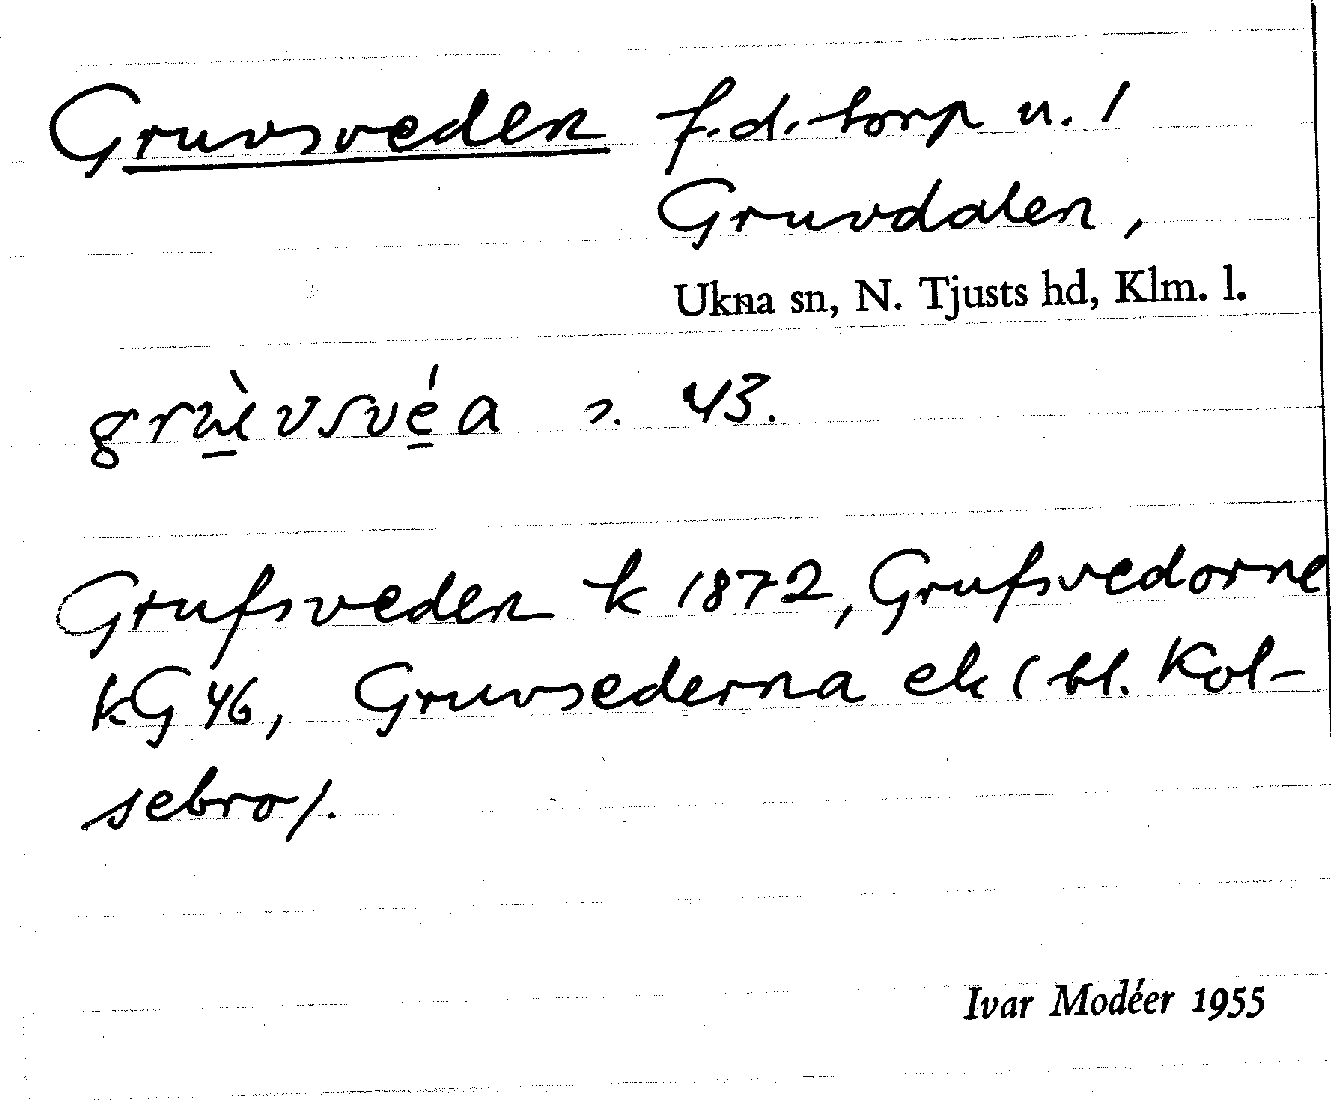 Gruvsveden f.d. torp u. 1
Gruvdalen,
Ukna sn, N. Tjusts hd, Klm. l.
grùvsvéa 2. 43.
Grufsveden k 1872, Grufsvedorne
kG 46, Gruvsederna ek (bl. Kol-
sebro).
Ivar Modéer 1955